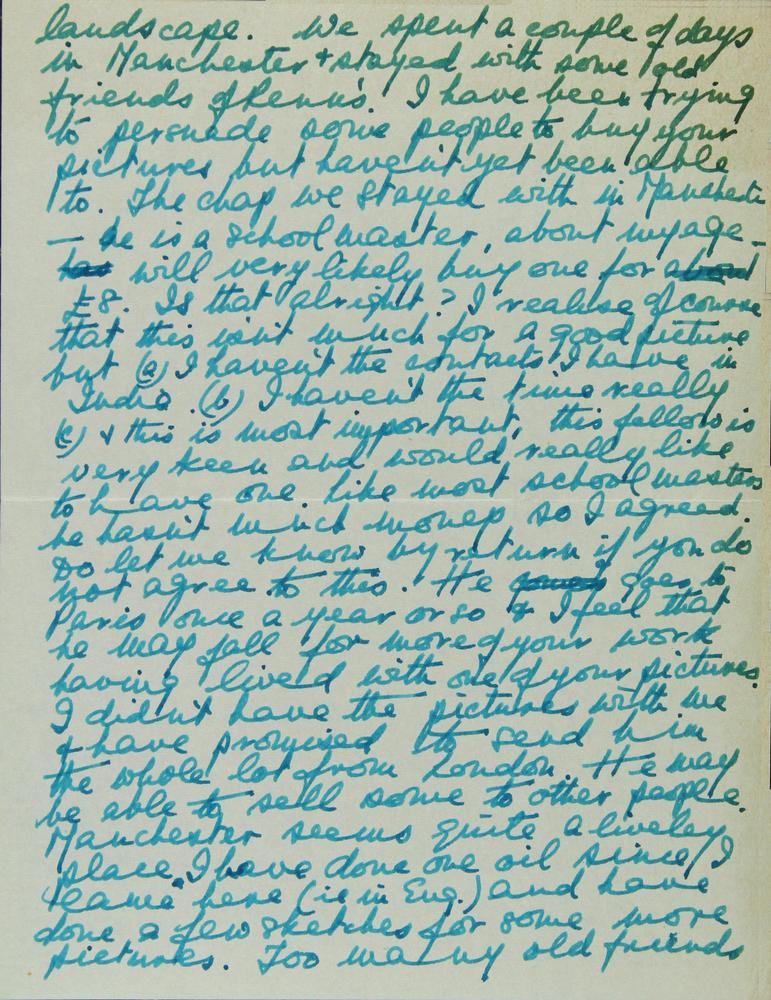 landscape. We spent a couple of days
in Manchester + stayed with some old
friends of Renu's. I have been trying
to persuade some people to buy your
pictures but haven't yet been able
to. The chap we stayed with in Manchester
— he is a schoolmaster, about my age —
has will very likely buy one for about
£8. Is that alright? I realise of course
that this isn't much for a good picture
but (a) I haven't the contacts I have in
India. (b) I haven't the time really
(c) & this is most important, this fellow is
very keen and would really like
to have one. Like most schoolmasters
he hasn't much money so I agreed.
Do let me know by return if you do
not agree to this. He goes to
Paris once a year or so & I feel that
he may fall for more of your work
having lived with one of your pictures.
I didn't have the pictures with me
& have promised to send him
the whole lot from London. He may
be able to sell some to other people.
Manchester seems quite a liveley
place. I have done one oil since I
came here (ie in Eng.) and have
done a few sketches for some more
pictures. Too many old friends